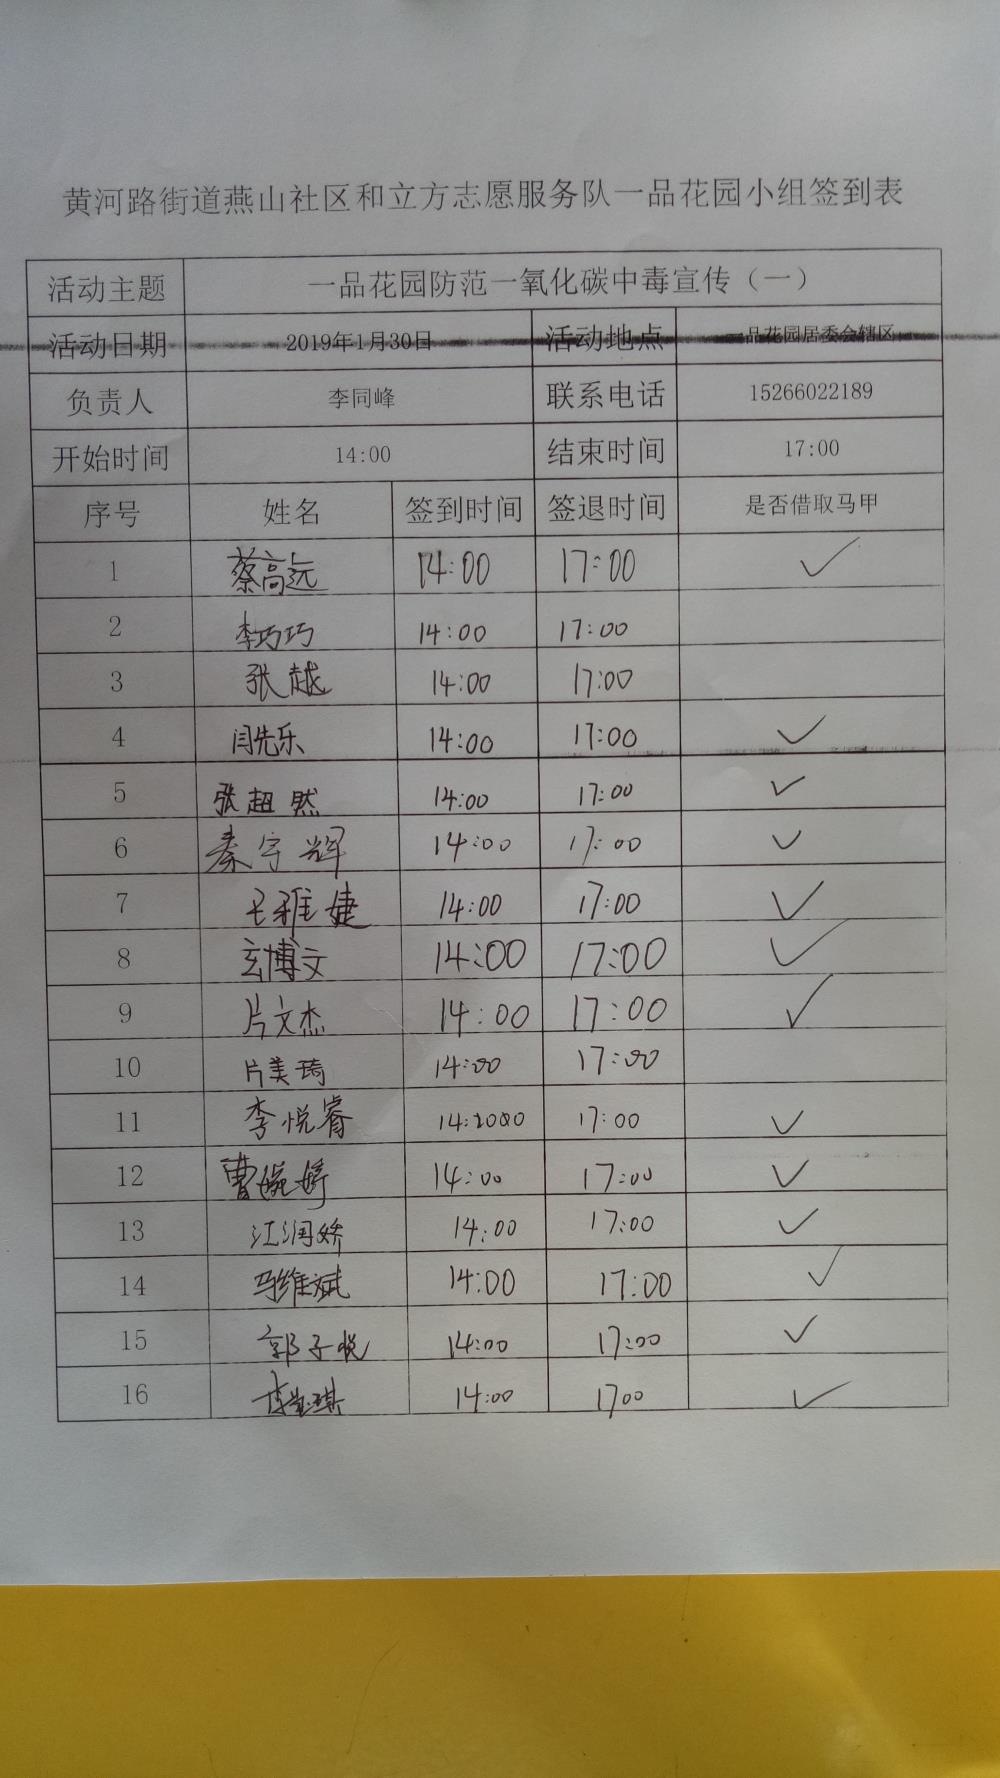 黄河路街道燕山社区和立方志愿服务队一品花园小组签到表
活动主题 一品花园防范一氧化碳中毒宣传（一）
活动日期 2019年1月30日 活动地点 一品花园居委会辖区
负责人 李同峰 联系电话 15266022189
开始时间 14:00 结束时间 17:00
序号 姓名 签到时间 签退时间 是否借取马甲
1 蔡高远 14:00 17:00 ✓
2 李巧巧 14:00 17:00
3 张越 14:00 17:00
4 闫先乐 14:00 17:00 ✓
5 张超然 14:00 17:00 ✓
6 秦宇辉 14:00 17:00 ✓
7 王雅婕 14:00 17:00 ✓
8 玄博文 14:00 17:00 ✓
9 片文杰 14:00 17:00 ✓
10 片美琦 14:00 17:00
11 李悦睿 17:00 ✓
12 曹婉婷 14:00 17:00 ✓
13 江润娇 14:00 17:00 ✓
14 马维斌 14:00 17:00 ✓
15 郭子悦 14:00 17:00 ✓
16 14:00 1700 ✓